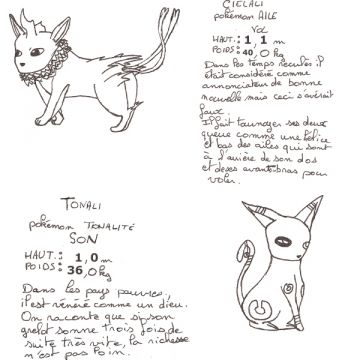 CIELALI
pokémon AILE
VOL
HAUT.: 1,1 m
POIDS: 40,0 kg
Dans les temps reculés il
était considéré comme
annonciateur de bonne
nouvelle mais ceci s'avérait
faux.
Il fait tournoyer ses deux
queue comme une hélice
et bas des ailes qui sont
à l'arrière de son dos
et de ses avant-bras pour
voler.
TONALI
pokémon TONALITÉ
SON
HAUT.: 1,0 m
POIDS: 36,0 kg
Dans les pays pauvres,
il est vénéré comme un dieu.
On raconte que si son
grelot sonne trois fois de
suite très vite, la richesse
n'est pas loin.